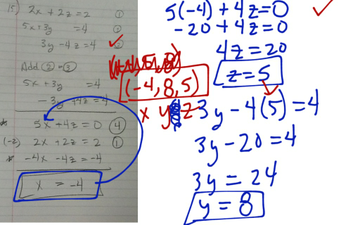 15) 2x + 2z = 2 ①
5x + 3y = 4 ②
3y - 4z = 4 ③
Add ② - ③
5x + 3y = 4
- 3y + 4z = -4
* 5x + 4z = 0 ④
(-2) 2x + 2z = 2 ①
* -4x - 4z = -4
x = -4
(-4, 8, 5)
x y z
5(-4) + 4z = 0
-20 + 4z = 0
4z = 20
z = 5
3y - 4(5) = 4
3y - 20 = 4
3y = 24
y = 8